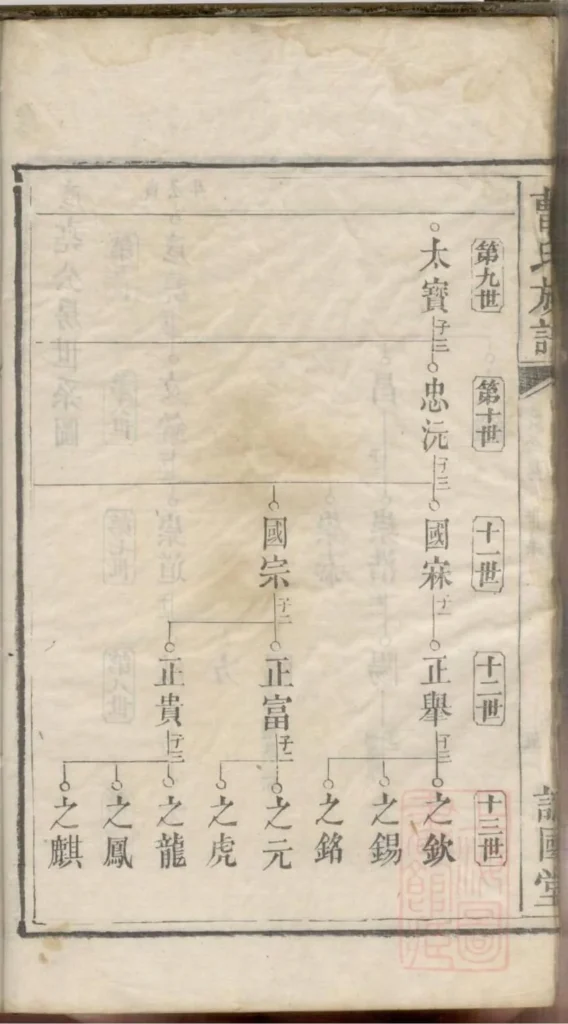 曹氏族譜
國堂
第九世
第十世
十一世
十二世
十三世
太寶
子三
忠沅
國寐
子一
正舉
子三
之欽
之錫
之銘
國宗
子二
正富
子二
之元
之虎
正貴
子三
之龍
之鳳
之麒